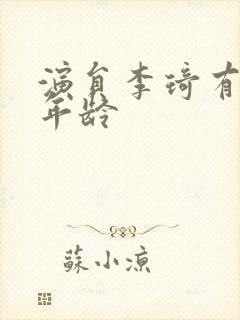 演員李琦有
年龄
蘇小涼